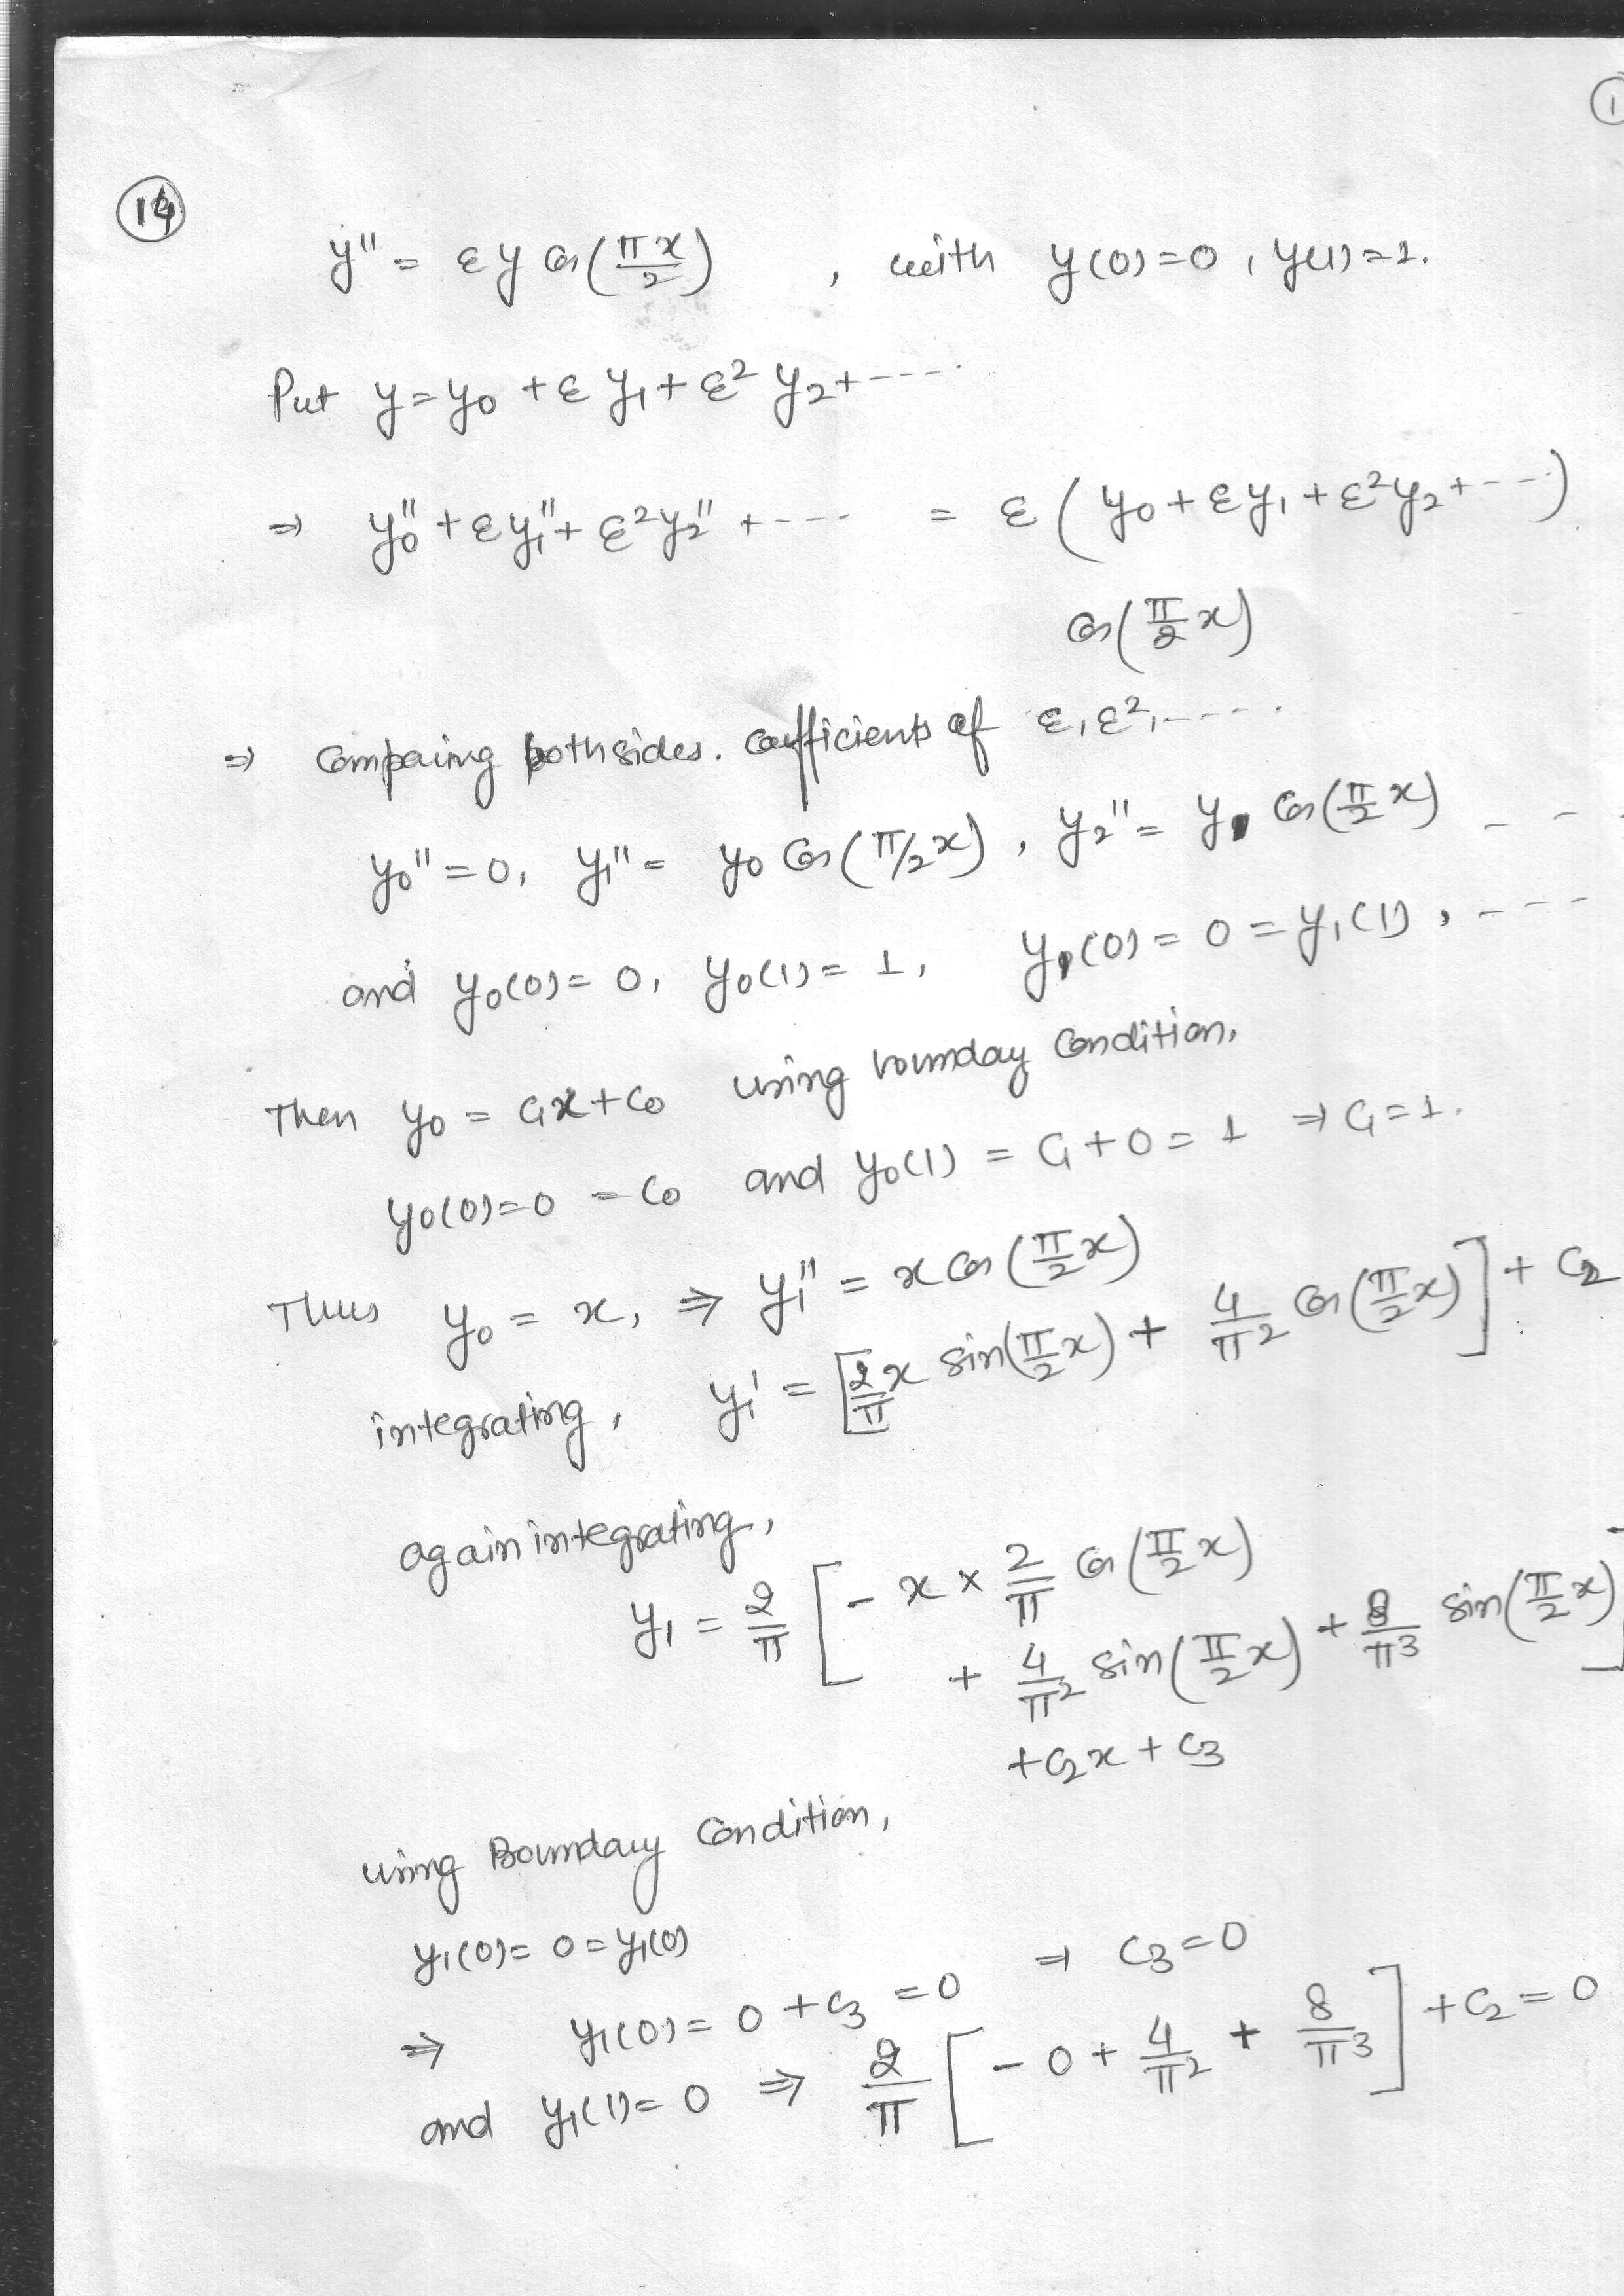 ①
⑭
y'' = εy cos(πx/2) , with y(0)=0, y(1)=1.
Put y = y₀ + εy₁ + ε²y₂ + ----
⇒ y₀'' + εy₁'' + ε²y₂'' + --- = ε(y₀ + εy₁ + ε²y₂ + ---)
cos(π/2 x)
⇒ Compaing both sides. Coefficients of ε, ε², ----.
y₀'' = 0, y₁'' = y₀ cos(π/2 x), y₂'' = y₁ cos(π/2 x) - - -
and y₀(0) = 0, y₀(1) = 1, y₁(0) = 0 = y₁(1), ----
Then y₀ = c₁x + c₀ using bounday Condition,
y₀(0) = 0 = c₀ and y₀(1) = c₁ + 0 = 1 ⇒ c₁ = 1.
Thus y₀ = x, ⇒ y₁'' = x cos(π/2 x)
integrating, y₁' = [2/π x sin(π/2 x) + 4/π² cos(π/2 x)] + c₂
again integrating,
y₁ = 2/π [ - x × 2/π cos(π/2 x)
+ 4/π² sin(π/2 x) + 8/π³ sin(π/2 x) ]
+ c₂x + c₃
using Boundary Condition,
y₁(0) = 0 = y₁(0)
⇒ y₁(0) = 0 + c₃ = 0 ⇒ c₃ = 0
and y₁(1) = 0 ⇒ 2/π [ - 0 + 4/π² + 8/π³ ] + c₂ = 0